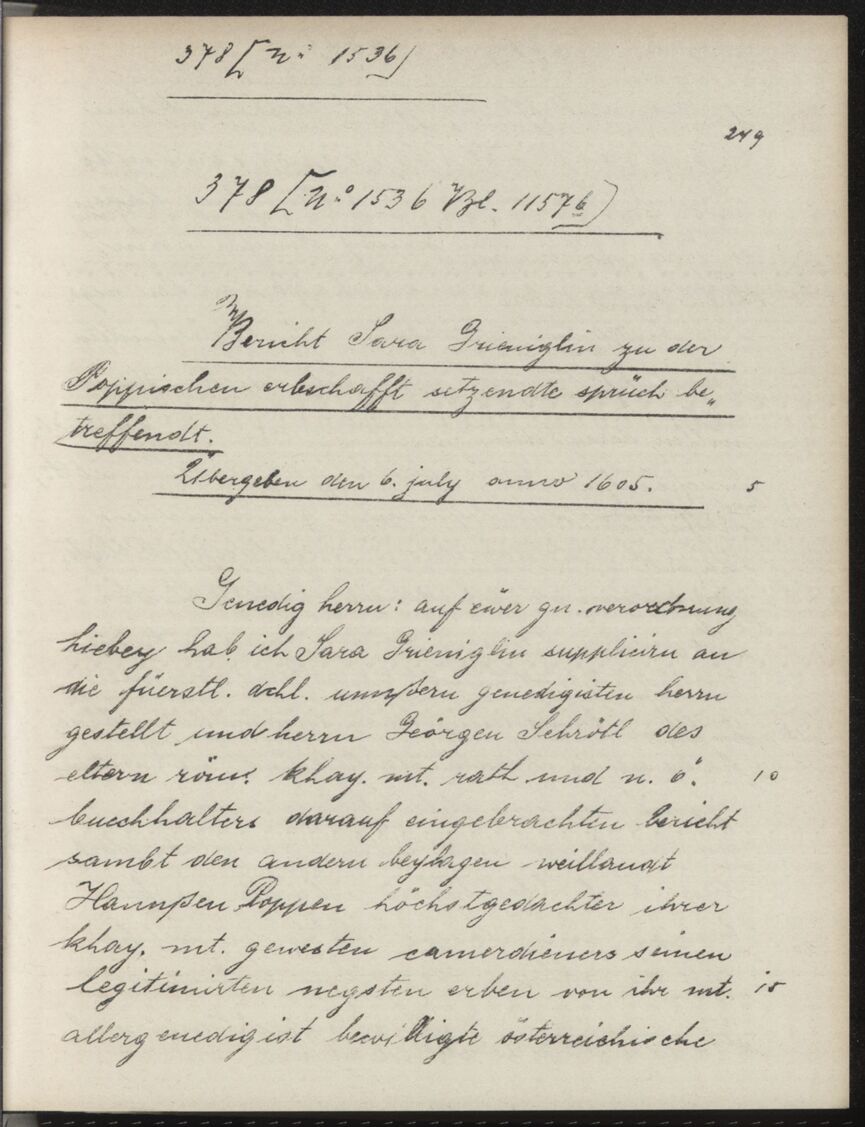 378 [Nº 1536]
249
378 [Nº 1536 Bl. 1157b]
Bericht Sara Grieniglin zu der
Poppischen erbschafft setzendte sprüch be„
treffendt.
Übergeben den 6. july anno 1605. 5
Genedig herrn: auf eüer gn. verordnung
hiebey hab ich Sara Grieniglin supplicirn an
die füerstl. dchl. unnßern genedigisten herrn
gestellt und herrn Geörgen Schrötl des
eltern röm. khay. mt. rath und n. ö. 10
buechhalters darauf eingebrachten bericht
sambt den andern beylagen weillandt
Hannßen Poppen höchstgedachter ihrer
khay. mt. gewesten camerdieners seinen
legitimirten negsten erben von ihr mt. 15
allergenedigist bewilligte österreichische